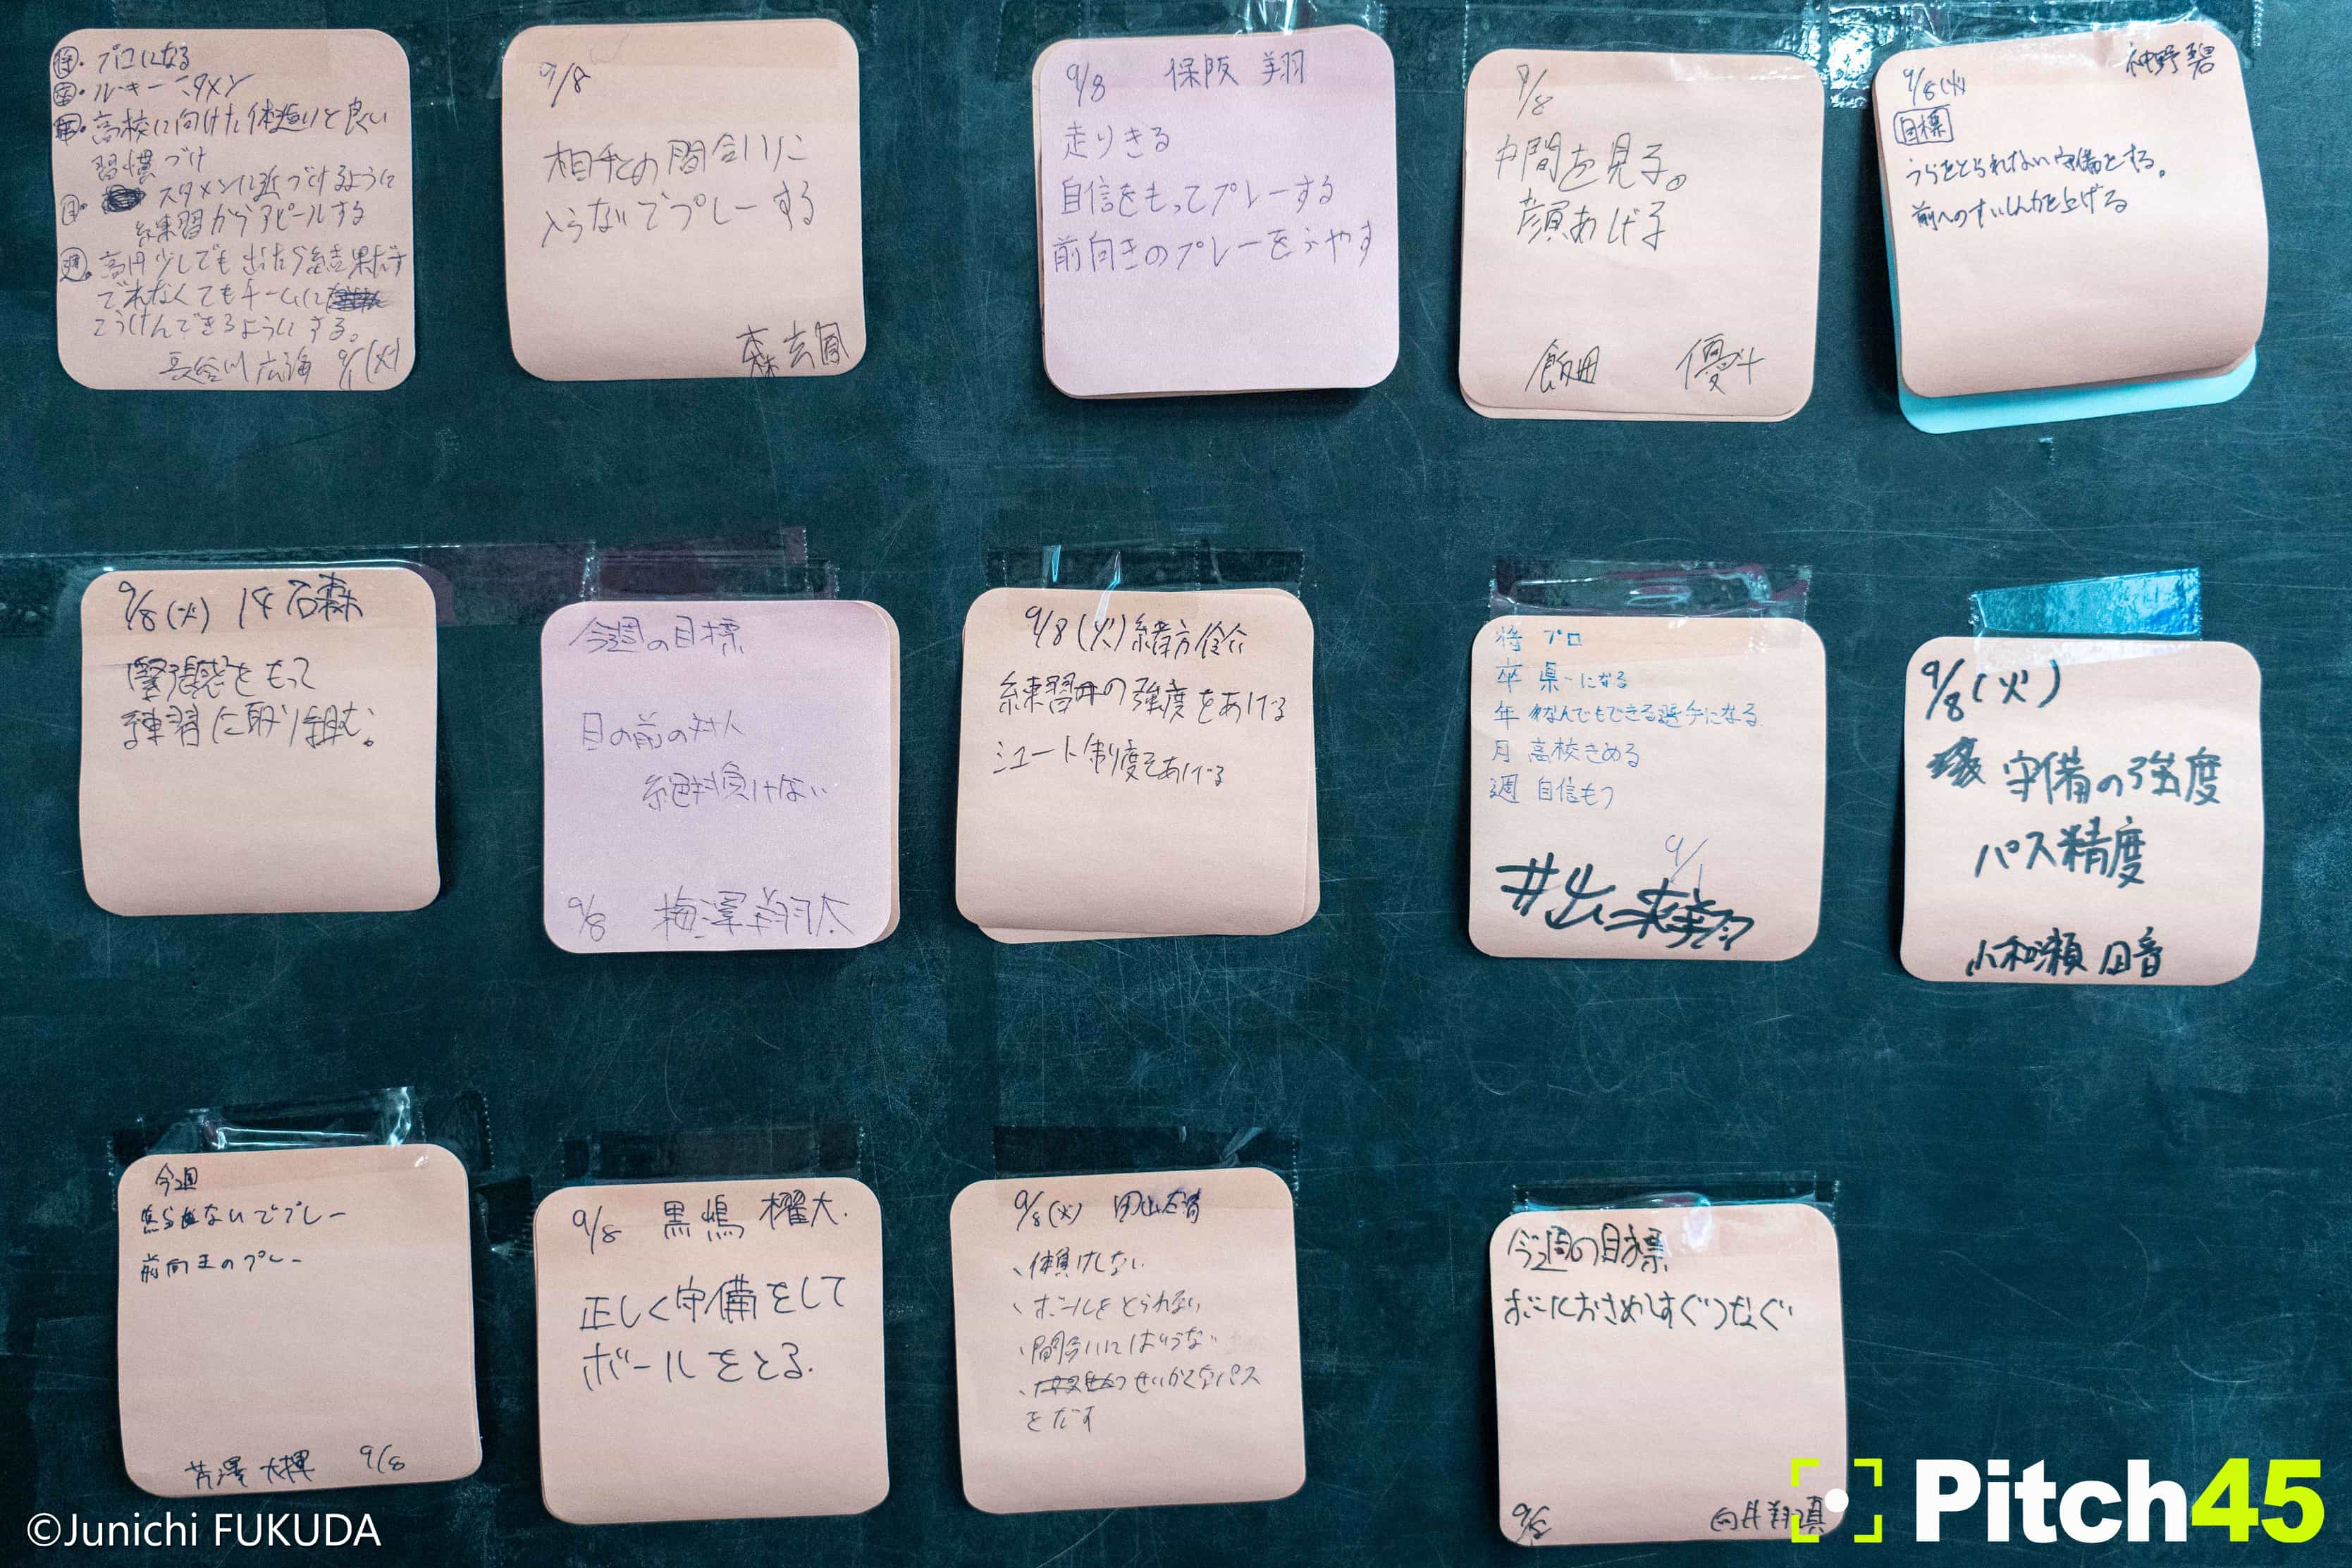 将・プロになる
卒・ルーキースタメン
年・高校に向けた体造りと良い
習慣づけ
月・スタメンに近づけるように
練習からアピールする
週・高円少しでも出たら結果だす
でれなくてもチームに
こうけんできるようにする。
長谷川 広海 9/1(火)
9/8
相手との間合いに
入らないでプレーする
森 玄
9/8 保阪 翔
走りきる
自信をもってプレーする
前向きのプレーをふやす
9/8
中間を見る。
顔あげる
飯田 優斗
9/8(火) 神野 碧
目標
うらをとられない守備をする。
前へのすいしん力を上げる
9/8(火) 14 石森
緊張感をもって
練習に取り組む。
今週の目標
目の前の対人
絶対負けない
9/8 梅澤 翔太
9/8(火) 緒方
練習中の強度をあげる
シュート制度をあげる
将 プロ
卒 県一になる
年 なんでもできる選手になる
月 高校きめる
週 自信もつ
9/1
井出 来翔
9/8(火)
守備の強度
パス精度
小和瀬
今週
焦らないでプレー
前向きのプレー
芹澤 大輝 9/8
9/8 黒嶋 櫂大.
正しく守備をして
ボールをとる.
9/8(火)
、体負けしない
、ボールをとられない
、間合いにはいらない
、せいかくなパス
をだす
今週の目標
ボールおさめすぐつなぐ
9/8 向井 翔
©Junichi FUKUDA
Pitch45